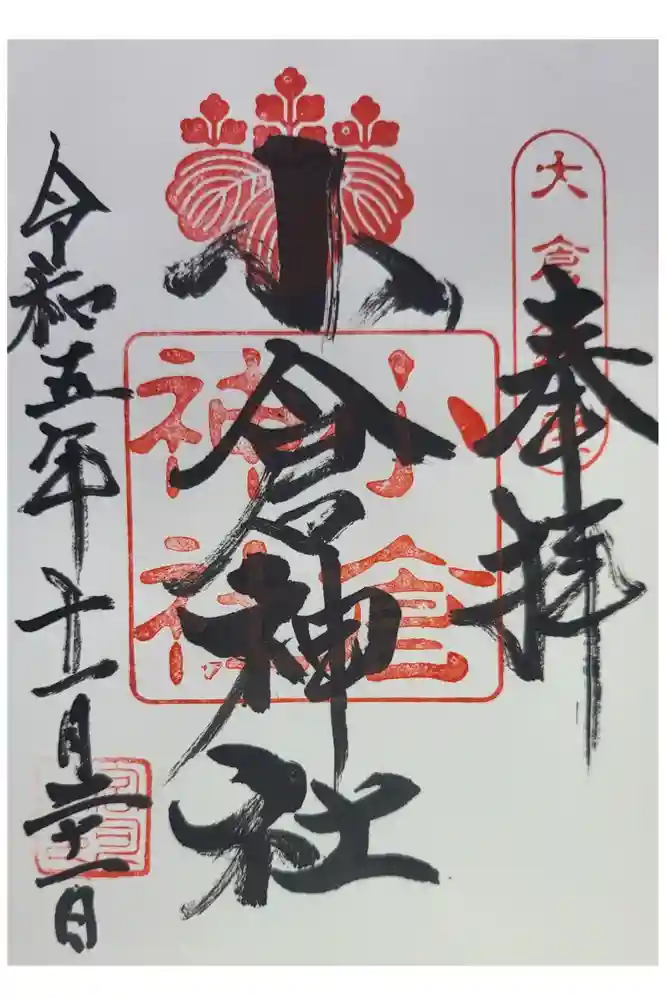 大倉
奉拝
小倉神社
小倉
神社
令和五年十一月二十一日